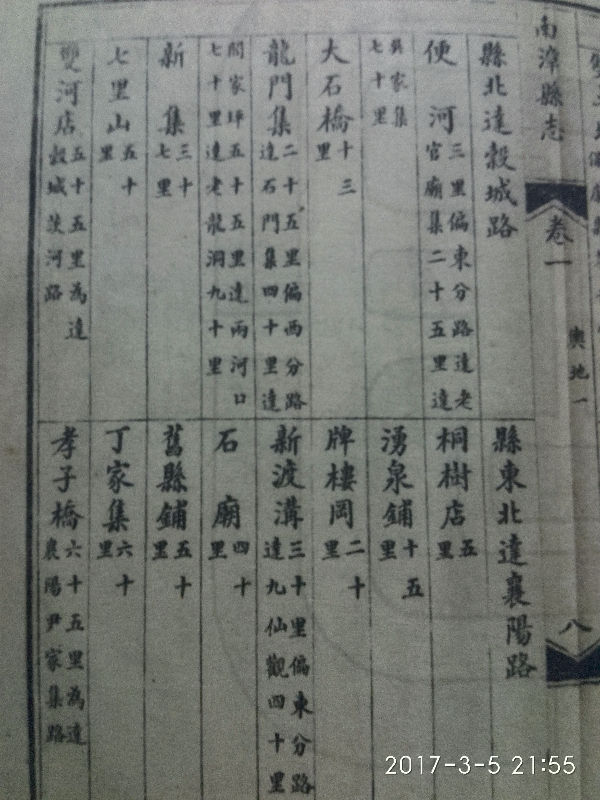 南漳縣志
卷一
輿地一
八
縣北達穀城路
便河三里偏東分路達老官廟集二十五里達
吳家集七十里
大石橋十三里
龍門集二十五里偏西分路達石門集四十里達
閻家坪五十五里達兩河口七十里達老龍洞九十里
新集三十七里
七里山五十里
雙河店五十五里為達穀城茨河路
縣東北達襄陽路
桐樹店五里
湧泉鋪十五里
牌樓岡二十里
新渡溝三十里偏東分路達九仙觀四十里
石廟四十里
舊縣鋪五十里
丁家集六十里
孝子橋六十五里為達襄陽尹家集路
2017-3-5 21:55